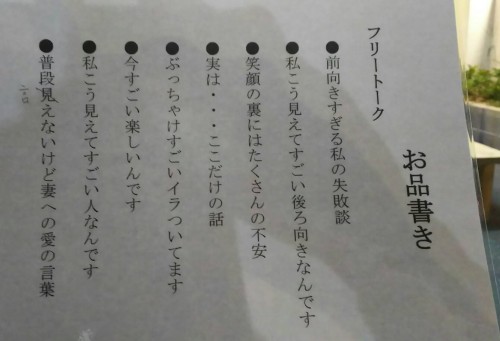 お品書き
フリートーク
●前向きすぎる私の失敗談
●私こう見えてすごい後ろ向きなんです
●笑顔の裏にはたくさんの不安
●実は・・・ここだけの話
●ぶっちゃけすごいイラついてます
●今すごい楽しいんです
●私こう見えてすごい人なんです
●普段見えないけど妻への愛の言葉